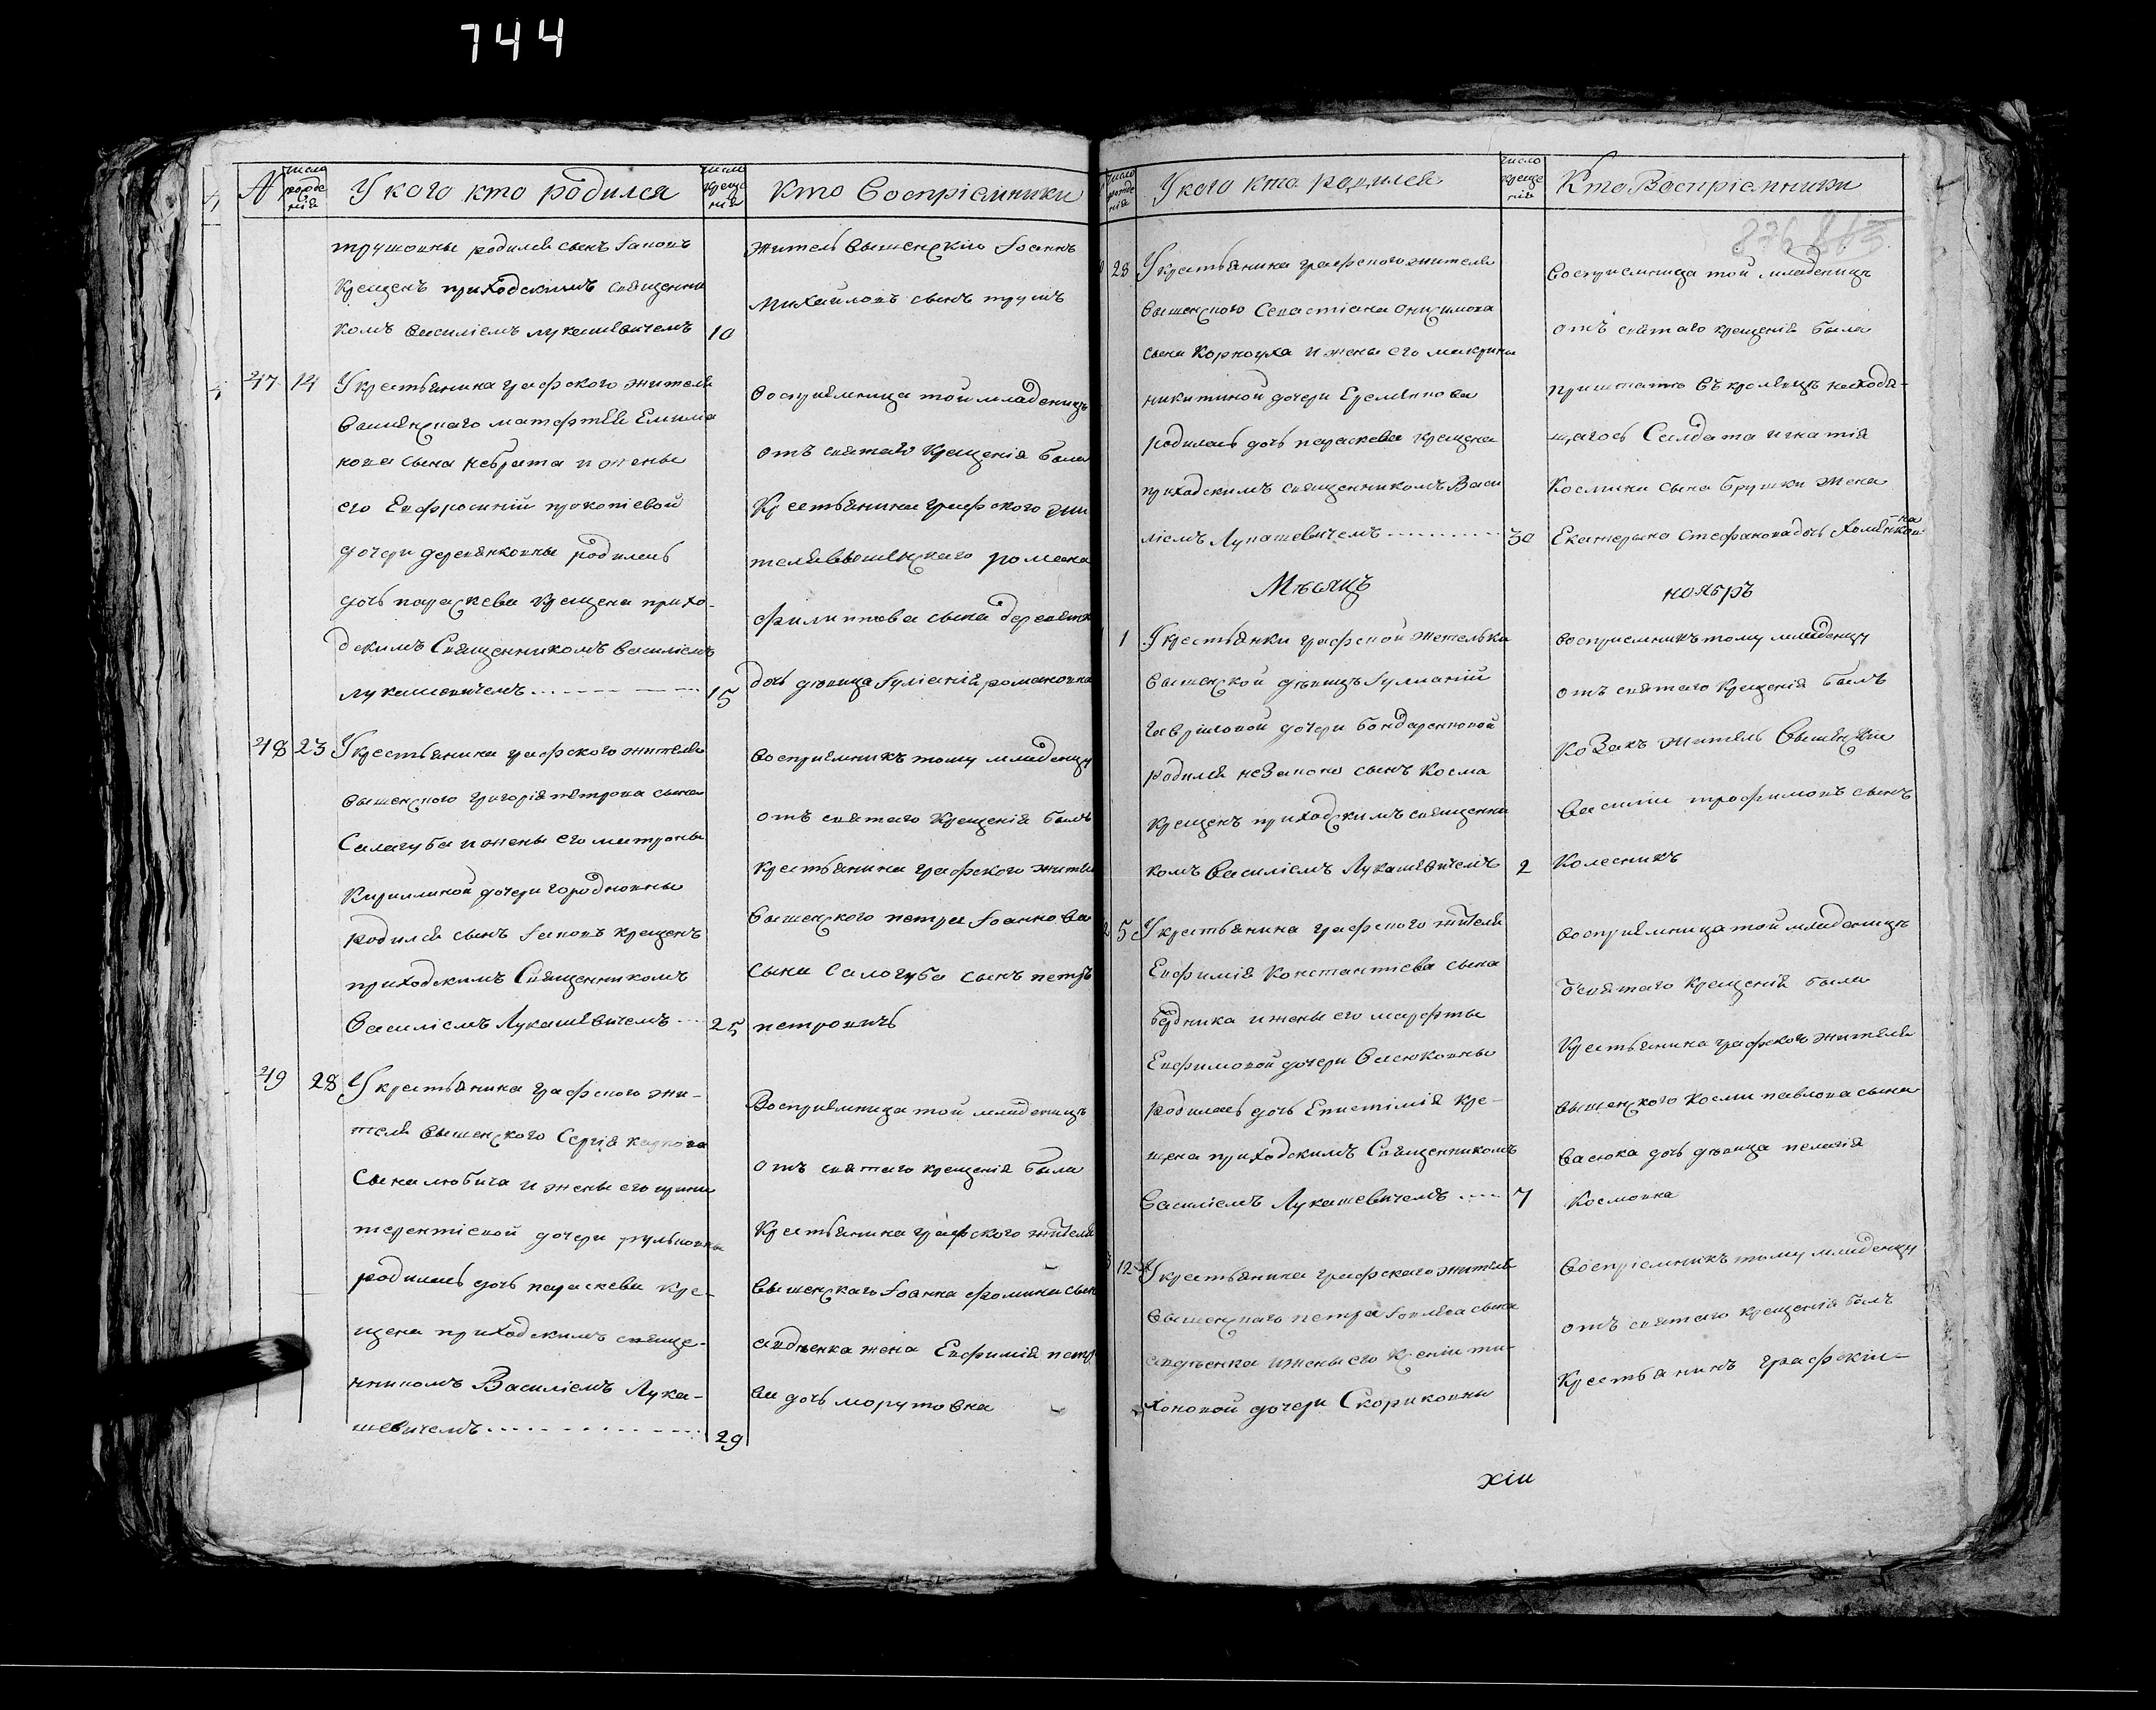 744
№
число рожденія
У кого кто родился
число крещенія
Кто Воспріемники
трушовны родился сынъ Іаковъ
крещенъ приходскимъ священни
комъ Василіемъ Лукашевичемъ 10
житель вышенскій Іоаннъ
Михайловъ сынъ трушъ
47 14 У крестьянина графского жителя
вышенскаго матфтея Емилиа
нова сына небрата и жены
его Евфросиніи прокопіевой
дочери деревянковны родилась
дочь параскева крещена прихо-
дскимъ Священникомъ василіемъ
лукашевичемъ 15
Воспріемница той младеницъ
отъ святаго крещенія была
Крестьянина графского жи
теля вышенскаго романа
филиппова сына деревянк
дочь девица Іуліанія романовна
48 23 У крестьянина графского жителя
вышенского григорія петрова сына
Салагуба и жены его матроны
Кириллиной дочери городновны
родился сынъ Іаковъ крещенъ
приходскимъ Священникомъ
Василіемъ Лукашевичемъ 25
воспріемникъ тому младенцу
отъ святаго крещенія былъ
крестьянина графского жителя
вышенского петра Іоаннова
сына салогуба сынъ петръ
петровичъ
49 28 У крестьянина графского жи-
теля вышенского Сергія карпова
сына любича и жены его ирины
терентіевой дочери рульковны
родилась дочь параскева кре-
щена приходскимъ свяще-
нникомъ Василіемъ Лука-
шевичемъ 29
Воспріемница той младеницъ
отъ святаго крещенія была
Крестьянина графского жителя
вышенскаго Іоанна фомина сына
авдѣенка жена Евфимія петро
ва дочьморутовна
число рожденія
У кого кто родился
число крещенія
Кто Воспріемники
876 863
28 У крестьянина графского жителя
вышенского Севастіана онисимова
сына Корноуха и жены его макрины
никитиной дочери Еремянковы
родилась дочь параскева крещена
приходскимъ священникомъ Васи
ліемъ Лукашевичемъ 30
Воспріемница той младеницъ
отъ святаго крещенія была
при штатѣ въ кролевцѣ находя-
щагось Салдата игнатія
Космина сына брушки жена
Екатерина Стефанова дочь Хоменковна
Мѣсяцъ ноябръ
1 У крестьянки графской жителька
вышенской девицъ Іулианіи
гавриловой дочери бондаренковой
родился незаконо сынъ Косма
крещенъ приходскимъ священни
комъ Василіемъ Лукашевичемъ 2
воспріемникъ тому младенцу
отъ святаго крещенія былъ
Козакъ житель Вышенскій
Василій трофимовъ сынъ
Колесникъ
2 5 У крестьянина графского жителя
Евфимія Константіева сына
бедника и жены его марфты
Евфимовой дочери Васюковны
родилась дочь Епистимія кре-
щена приходскимъ Священникомъ
Василіемъ Лукашевичемъ 7
воспріемница той младеницъ
ѿ святаго крещенія была
Крестьянина графского жителя
вышенского Косми павлова сына
васюка дочь девица пелагія
Космовна
3 12 У крестьянина графскаго жителя
вышенскаго петра Іовлева сына
авдѣенка и жены его Ксеніи ти-
хоновой дочери Скориковны
воспріемникъ тому младенцу
отъ святаго крещенія былъ
Крестьянинъ графскій